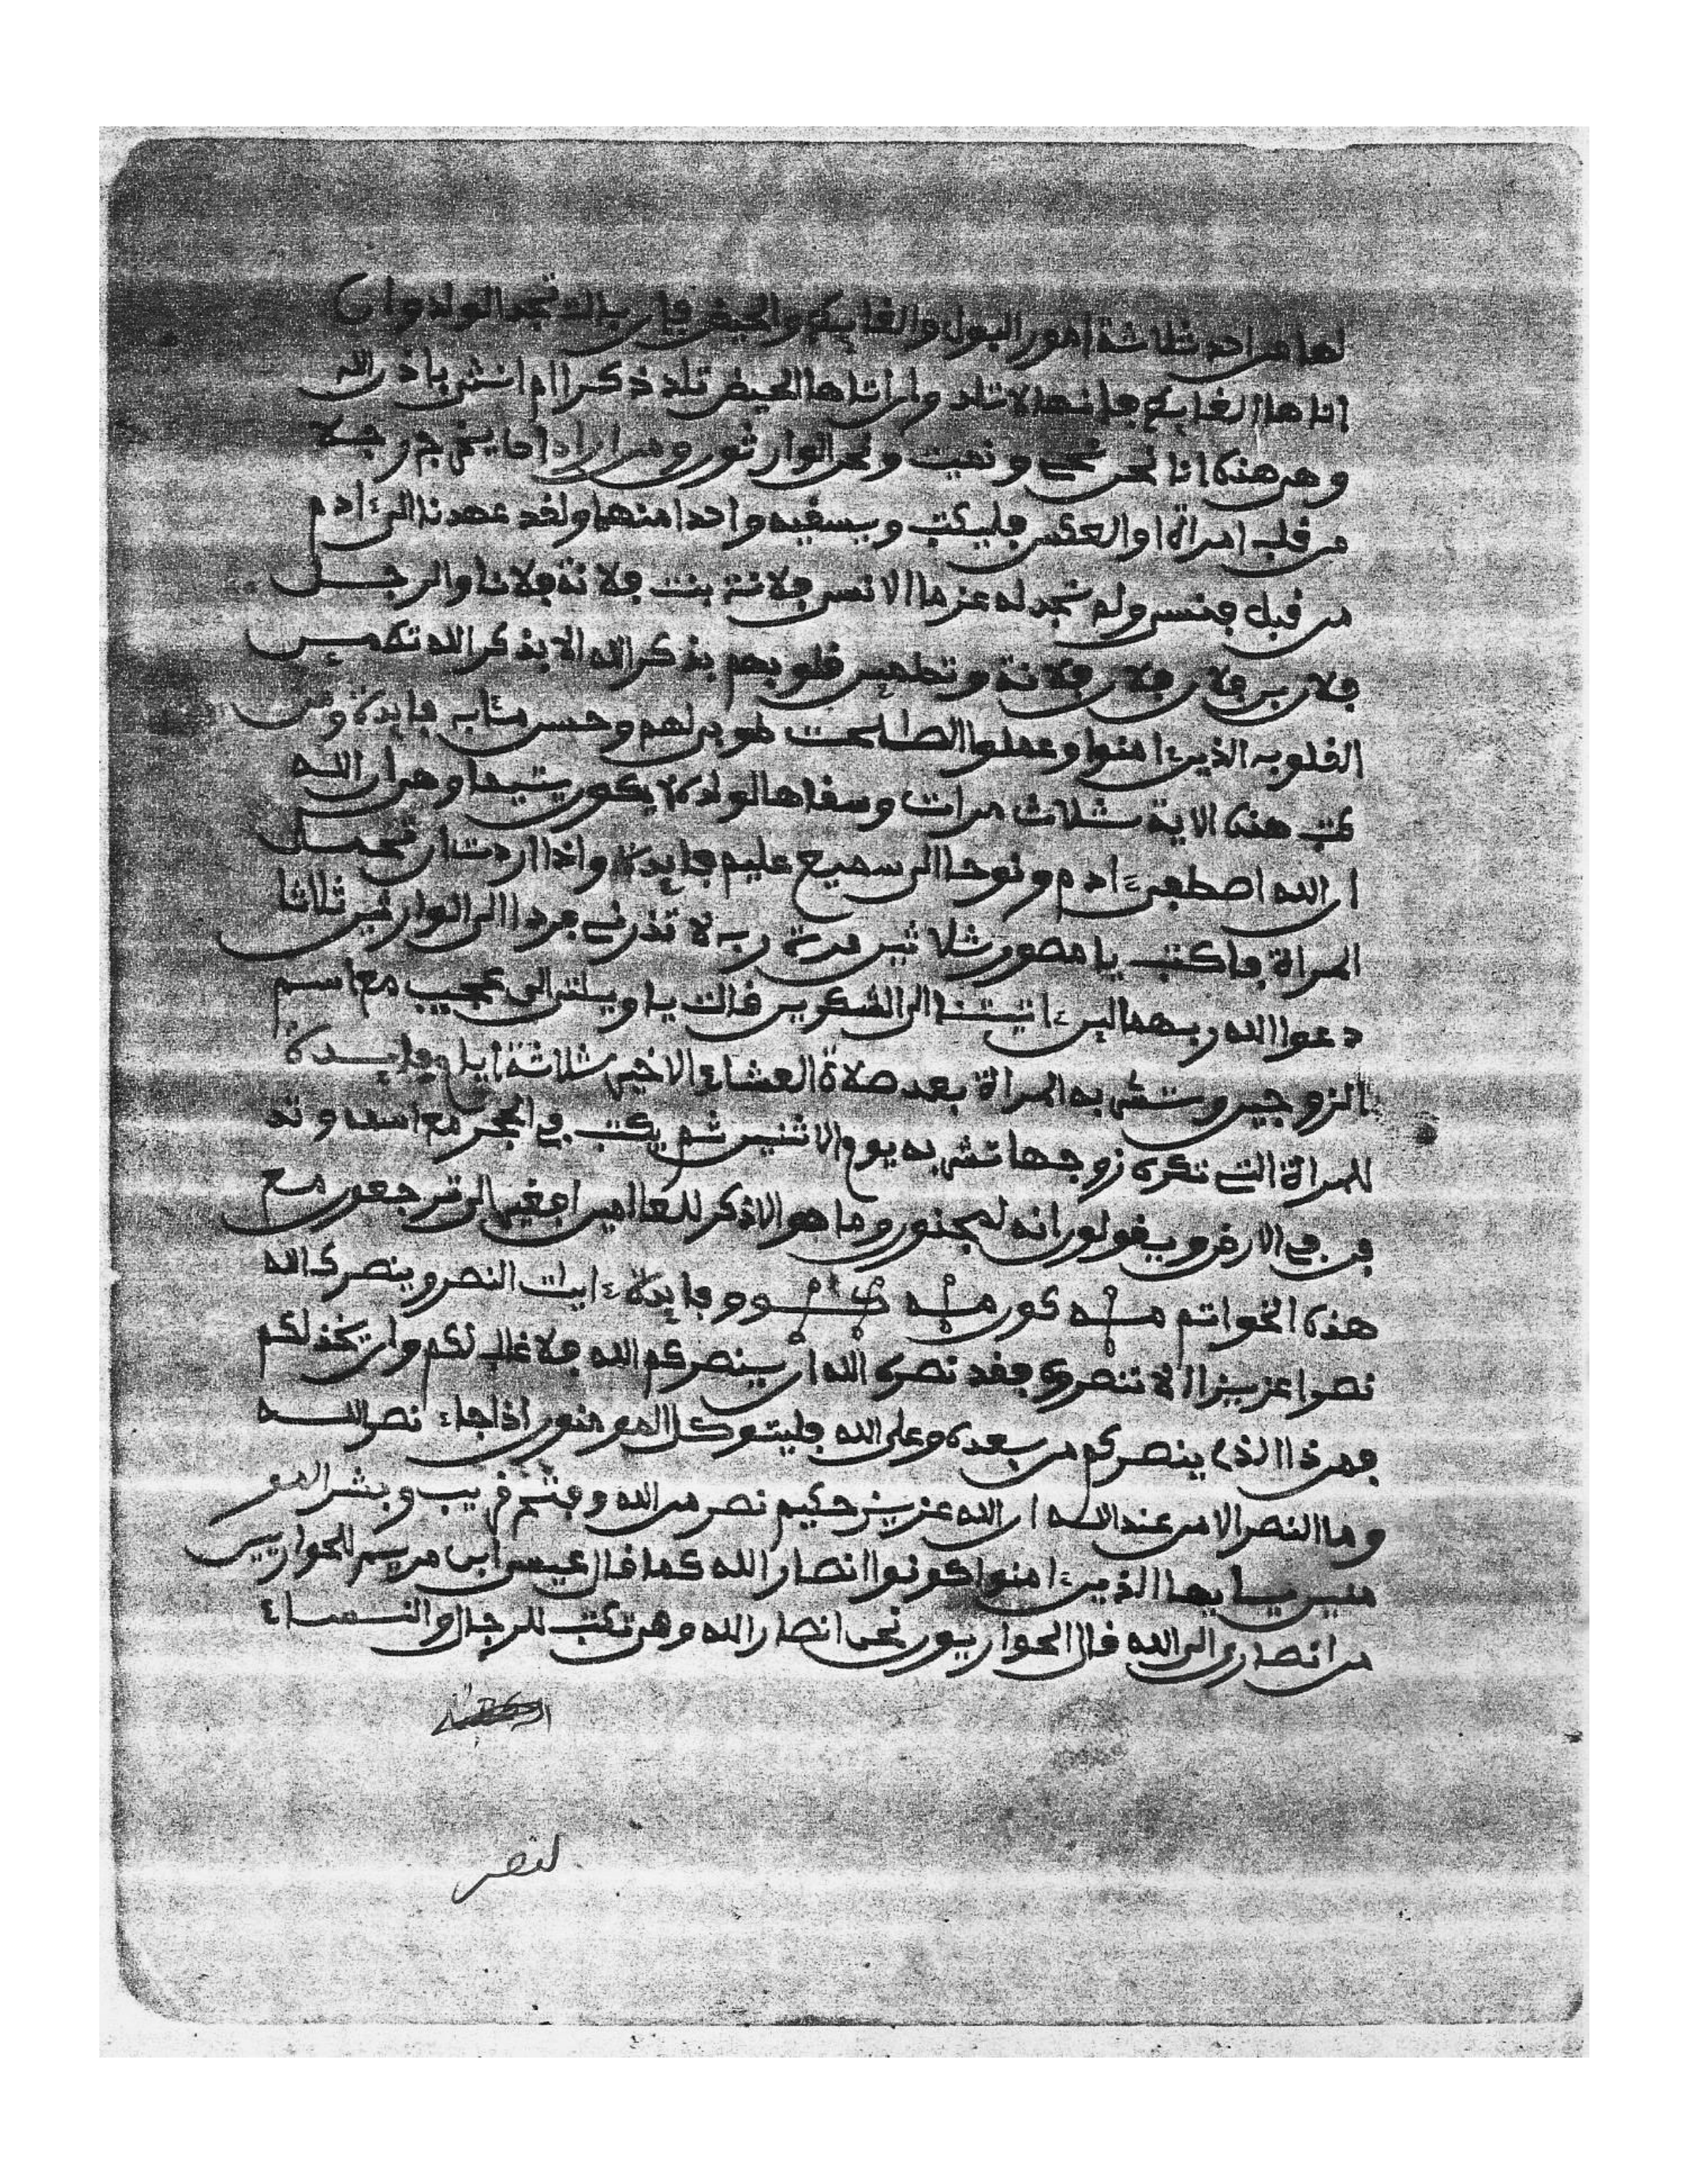 لها من احد ثلاثة امور البول والغايط والحيض فان بالت تجد الولد وان
اتاها الغايط فانها لا تلد وان اتاها الحيض تلد ذكرا ام انثى باذن الله
وهي هذه انا نحن نحي ونميت ونحن الوارثون ومن اراد ان يخرج رجلا
من قلب امراة او العكس فليكتب ويسقيه واحدا منهما ولقد عهدنا الى ءادم
من قبل فنسي ولم نجد له عزما الا نسي فلانة بنت فلانة فلانا والرجل
فلان بن فلان فلانة وتطمين قلوبهم بذكر الله الا بذكر الله تطمين
القلوب الذين ءامنوا وعملوا الصلحت طوبى لهم وحسن مئاب فايدة ومن
كتب هذه الاية ثلاث مرات وسقاها لولده لا يكون يتيما وهي ان الله
ان الله اصطفى ءادم ونوحا الى سميع عليم فايدة واذا اردت ان تحمل
المراة فاكتب يا مصور ثلاثين مرة رب لا تذرني فردا الى الوارثين ثلاثا
دعوا الله ربهما لين ءاتيتنا الى الشكرين قالت يا ويلتى الى عجيب مع اسم
الزوجين وتشربه المراة بعد صلاة العشاء الاخير ثلاثة ايام فايدة
للمراة التي تكره زوجها تشربه يوم الاثنين ثم يكتب في الحجر مع اسمه وتد
فن في الارض ويقولون انه لمجنون وما هو الا ذكر للعالمين افغير الى ترجعون مع
هذه الخواتم وفايدة ءايات النصر وينصرك الله
نصرا عزيزا الا تنصروه فقد نصره الله ان ينصركم الله فلا غالب لكم وان يخذلكم
فمن ذا الذي ينصركم من بعده وعلى الله فليتوكل المومنون اذا جاء نصر الله
وما النصر الا من عند الله ان الله عزيز حكيم نصر من الله وفتح قريب وبشر المو
منين يا يها الذين ءامنوا كونوا انصار الله كما قال عيسى ابن مريم للحواريين
من انصاري الى الله قال الحواريون نحن انصار الله وهي تكتب للرجال والنساء
لنصر